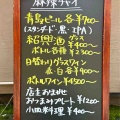 青島ビール 各¥900〜
(スタンダード・黒・IPA)
紹興酒 グラス¥400〜
ボトル各¥2300〜
日替わりグラスワイン
赤・白 ¥700〜
ボトルワイン¥4500〜
店主おまかせ
おつまみプレート¥1200
小皿料理 ¥400〜